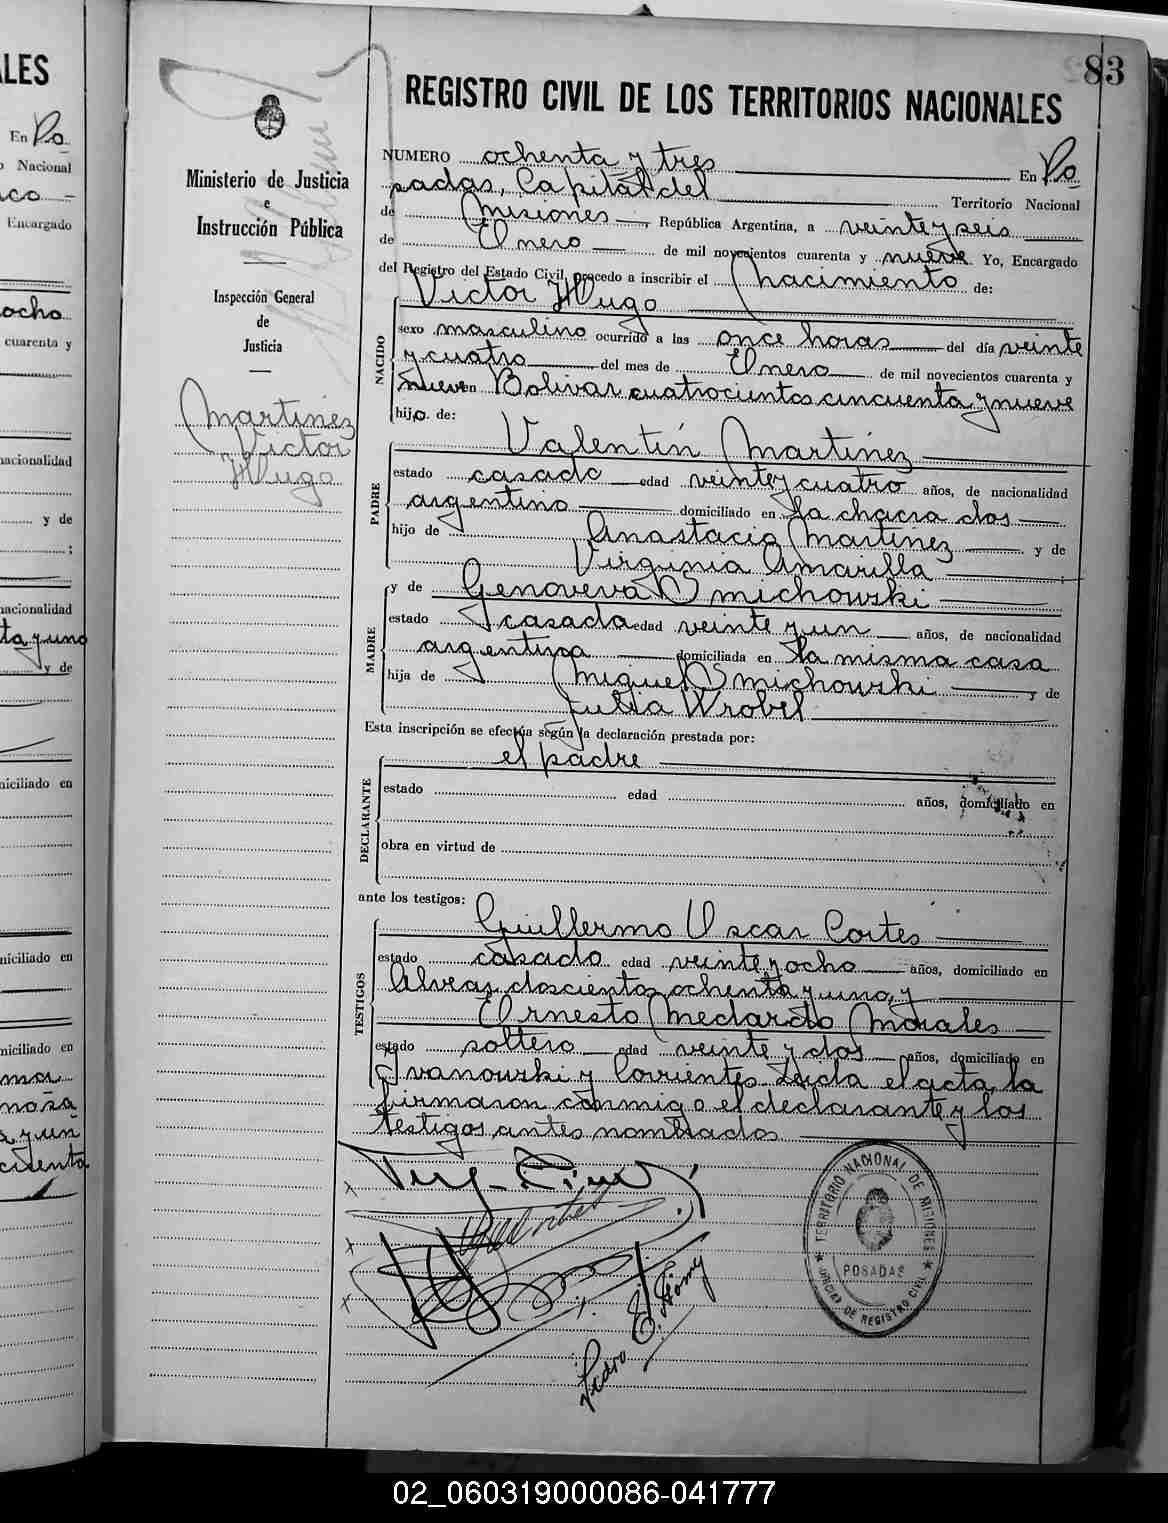 83
REGISTRO CIVIL DE LOS TERRITORIOS NACIONALES
Ministerio de Justicia
e
Instrucción Pública
Inspección General
de
Justicia
Martinez
Victor
Hugo
NUMERO ochenta y tres En Po
sadas, Capital del Territorio Nacional
de Misiones República Argentina, a veinte y seis
de Enero de mil novecientos cuarenta y nueve Yo, Encargado
del Registro del Estado Civil, procedo a inscribir el Nacimiento de:
Victor Hugo
NACIDO
sexo masculino ocurrido a las once horas del día veinte
y cuatro del mes de Enero de mil novecientos cuarenta y
nueve en Bolivar cuatrocientos cincuenta y nueve
hijo de:
Valentín Martinez
PADRE
estado casado edad veinte y cuatro años, de nacionalidad
argentino domiciliado en la chacra dos
hijo de Anastacio Martinez y de
Virginia Amarilla
y de Genoveva Smichowski
MADRE
estado casada edad veinte y un años, de nacionalidad
argentina domiciliada en la misma casa
hija de Miguel Smichowski y de
Julia Wrobel
Esta inscripción se efectúa según la declaración prestada por:
el padre
DECLARANTE
estado edad años, domiciliado en
obra en virtud de
ante los testigos:
Guillermo Oscar Cortes
TESTIGOS
estado casado edad veinte y ocho años, domiciliado en
Alveas doscientos ochenta y uno, y
Ernesto Medardo Morales
estado soltero edad veinte y dos años, domiciliado en
Ivanowski y Corrientes. Leida el acta, la
firmaron conmigo el declarante y los
testigos antes nombrados
TERRITORIO NACIONAL DE MISIONES
POSADAS
OFICINA DE REGISTRO CIVIL
Pedro E. Gómez
LES
En Po
Nacional
Encargado
ocho
cuarenta y
nacionalidad
y de
nacionalidad
ta y uno
y de
miciliado en
niciliado en
niciliado en
y un
02_060319000086-041777